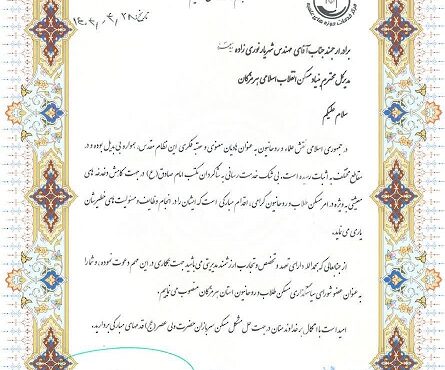 مرکز خدمات حوزه های علمیه
تاریخ: ۱۴۰۲/۰۴/۲۸
برادر ارجمند جناب آقای مهندس شهریار نوری زاده
مدیرکل محترم بنیاد مسکن انقلاب اسلامی هرمزگان
سلام علیکم
در جمهوری اسلامی نقش علماء و روحانیون به عنوان هادیان معنوی و عقبه فکری این نظام مقدس، همواره بی بدیل بوده و در
مقاطع مختلف به اثبات رسیده است. بی شک خدمت رسانی به شاگردان مکتب امام صادق(ع) در جهت کاهش دغدغه های
معیشتی به ویژه در امر مسکن طلاب و روحانیون گرامی، اقدام مبارکی است که ایشان را در انجام وظایف و مسئولیت های خطیرشان
یاری می نماید.
از جنابعالی که بحمدالله دارای تعهد و تخصص و تجارب ارزشمند مدیریتی می باشید جهت همکاری در این مهم دعوت نموده و شما را
به عنوان عضو شورای سیاستگذاری مسکن طلاب و روحانیون استان هرمزگان منصوب می نمایم.
امید است با اتکال بر خداوند منان در جهت حل مشکل مسکن سربازان حضرت ولی عصر(عج) قدمهای مبارکی بردارید.